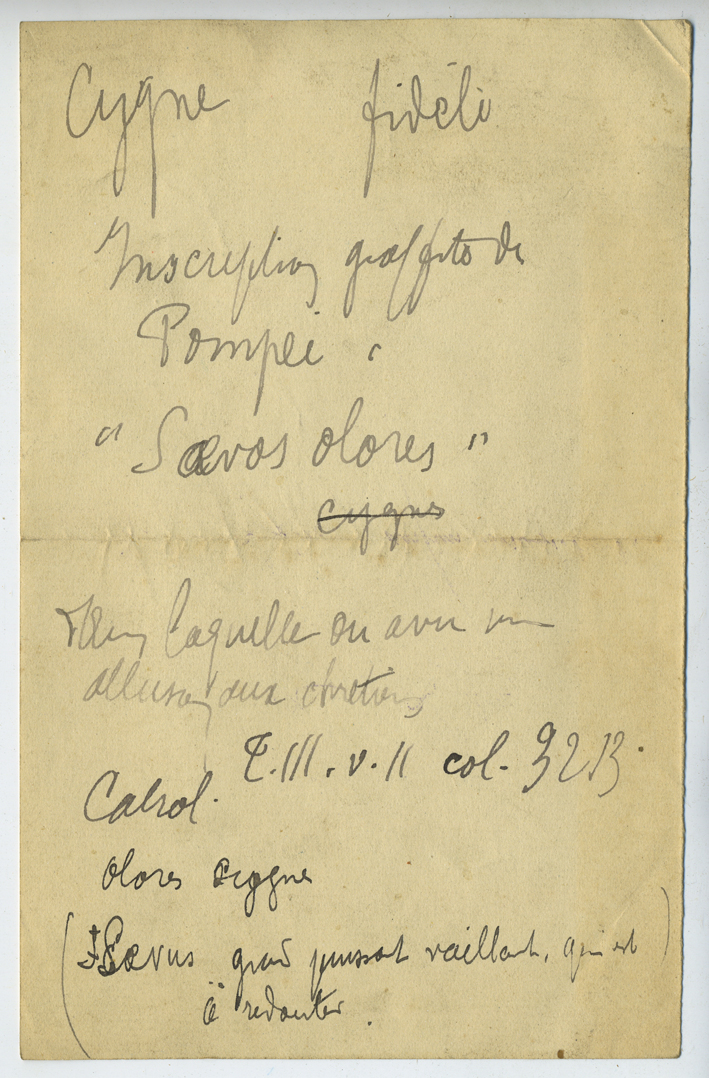 Cygne fidéli
Inscription graffito de
Pompei
" Sævos olores "
cygnes
dans laquelle on a vu une
allusion aux chrétiens
T. III. v. II col. 3213.
Cabrol.
olores cygnes
(Sævus grand puissant vaillant, qui est )
à redouter.